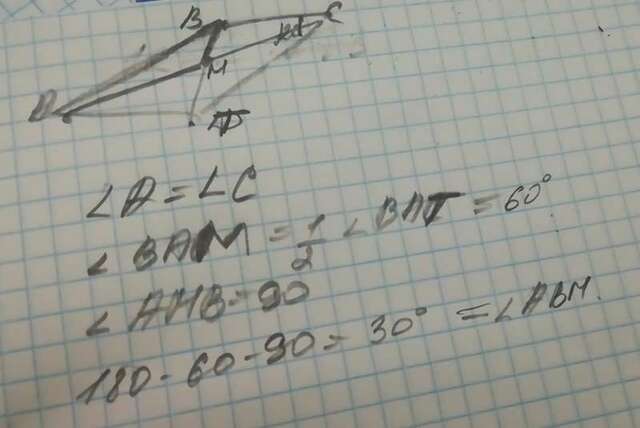 B
C
M
A
∠A = ∠C
∠BAM = 1/2 ∠BAT = 60°
∠AMB = 90
180 - 60 - 90 = 30° = ∠ABM.